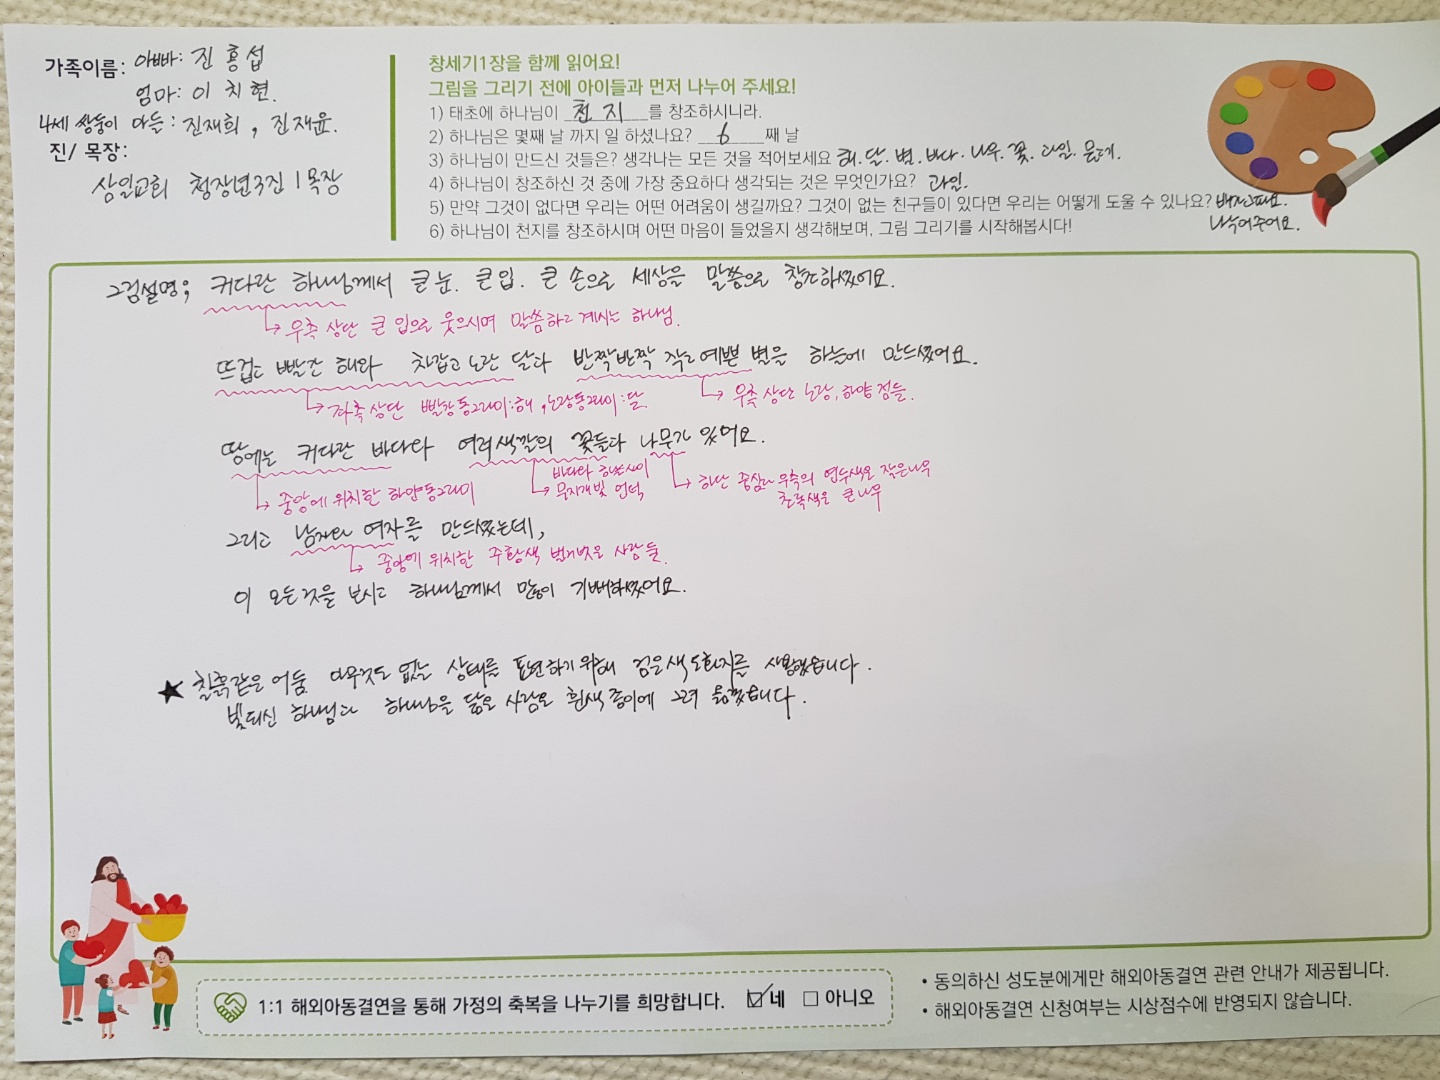 가족이름: 아빠: 진홍섭
엄마: 이치현.
4세 쌍둥이 아들: 진재희, 진재윤.
진/ 목장:
삼일교회 청장년3진 1목장
창세기1장을 함께 읽어요!
그림을 그리기 전에 아이들과 먼저 나누어 주세요!
1) 태초에 하나님이 천지를 창조하시니라.
2) 하나님은 몇째 날 까지 일 하셨나요? 6째 날
3) 하나님이 만드신 것들은? 생각나는 모든 것을 적어보세요 해.달.별.바다.나무.꽃.과일.물고기.
4) 하나님이 창조하신 것 중에 가장 중요하다 생각되는 것은 무엇인가요? 과일.
5) 만약 그것이 없다면 우리는 어떤 어려움이 생길까요? 그것이 없는 친구들이 있다면 우리는 어떻게 도울 수 있나요? 배고파요.
나눠주어요.
6) 하나님이 천지를 창조하시며 어떤 마음이 들었을지 생각해보며, 그림 그리기를 시작해봅시다!
그림설명; 커다란 하나님께서 큰 눈. 큰 입. 큰 손으로 세상을 말씀으로 창조하셨어요.
우측 상단 큰 입으로 웃으시며 말씀하고 계시는 하나님.
뜨겁고 빨간 해와 차갑고 노란 달과 반짝반짝 작고 예쁜 별을 하늘에 만드셨어요.
좌측상단 빨강동그라미:해, 노랑동그라미:달
우측 상단 노랑, 하양 점들.
땅에는 커다란 바다와 여러색깔의 꽃들과 나무가 있어요.
중앙에 위치한 하얀동그라미
바다와 하나님사이
무지개빛 언덕
하단 중심과 우측의 연두색은 작은나무
초록색은 큰나무
그리고 남자와 여자를 만드셨는데,
중앙에 위치한 주황색 벌거벗은 사람들.
이 모든것을 보시고 하나님께서 많이 기뻐하셨어요.
★ 칠흑같은 어둠 아무것도 없는 상태를 표현하기위해 검은색도화지를 사용했습니다.
빛되신 하나님과 하나님을 닮은 사람은 흰색종이에 그려 옮겼습니다.
1:1 해외아동결연을 통해 가정의 축복을 나누기를 희망합니다. ☑ 네 □ 아니오
• 동의하신 성도분에게만 해외아동결연 관련 안내가 제공됩니다.
• 해외아동결연 신청여부는 시상점수에 반영되지 않습니다.